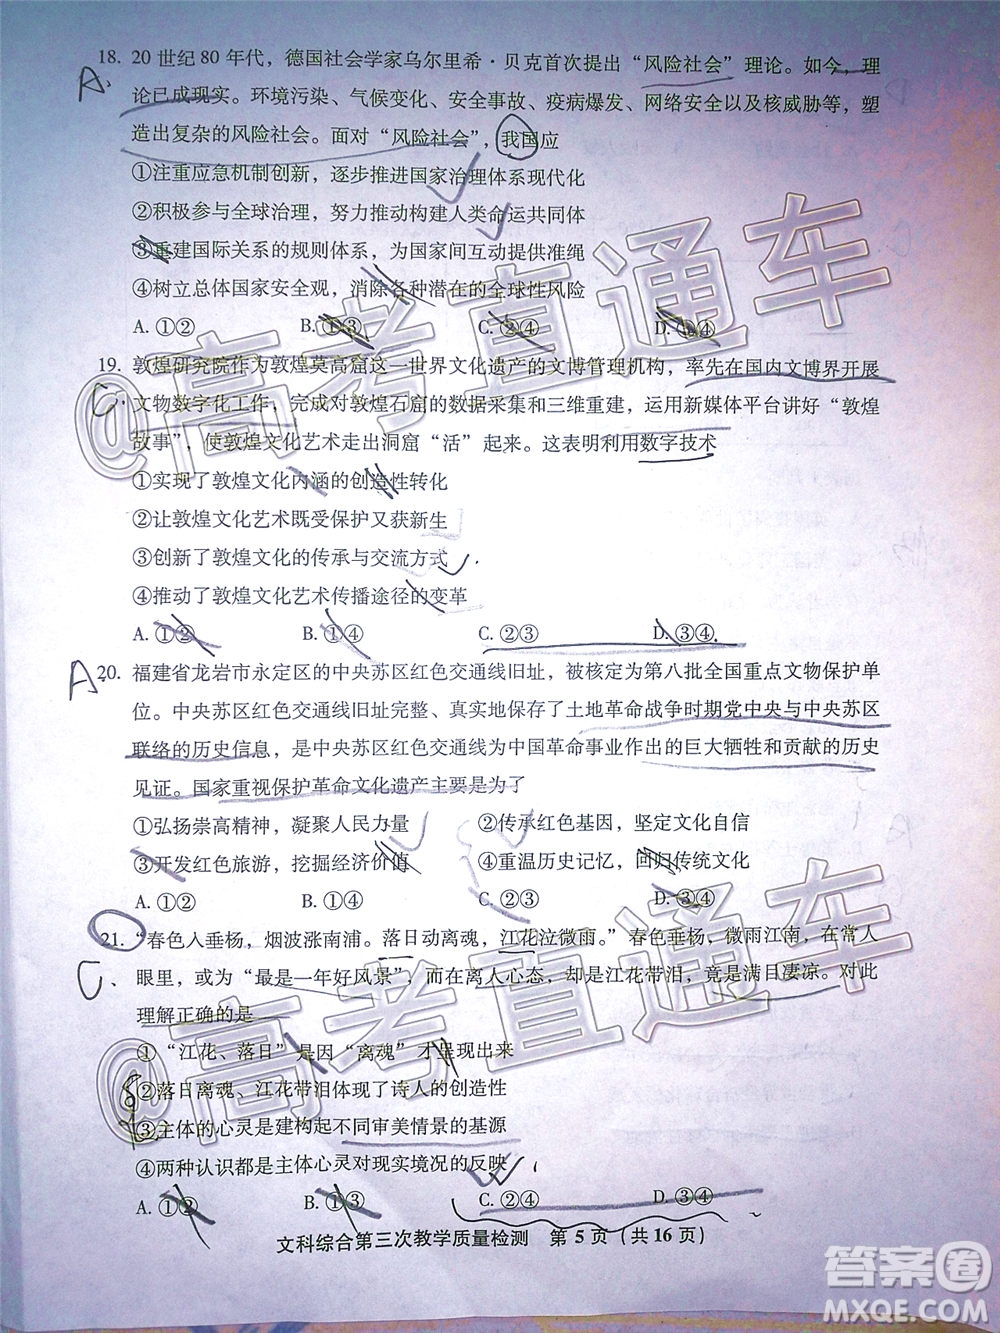 18. 20 世纪 80 年代，德国社会学家乌尔里希·贝克首次提出“风险社会”理论。如今，理
A.
论已成现实。环境污染、气候变化、安全事故、疫病爆发、网络安全以及核威胁等，塑
造出复杂的风险社会。面对“风险社会”，我国应
①注重应急机制创新，逐步推进国家治理体系现代化
②积极参与全球治理，努力推动构建人类命运共同体
③重建国际关系的规则体系，为国家间互动提供准绳
④树立总体国家安全观，消除各种潜在的全球性风险
A. ①② B. ①③ C. ②④ D. ③④
19. 敦煌研究院作为敦煌莫高窟这一世界文化遗产的文博管理机构，率先在国内文博界开展
C.
文物数字化工作，完成对敦煌石窟的数据采集和三维重建，运用新媒体平台讲好“敦煌
故事”，使敦煌文化艺术走出洞窟“活”起来。这表明利用数字技术
①实现了敦煌文化内涵的创造性转化
②让敦煌文化艺术既受保护又获新生
③创新了敦煌文化的传承与交流方式
④推动了敦煌文化艺术传播途径的变革
A. ①② B. ①④ C. ②③ D. ③④
A 20. 福建省龙岩市永定区的中央苏区红色交通线旧址，被核定为第八批全国重点文物保护单
位。中央苏区红色交通线旧址完整、真实地保存了土地革命战争时期党中央与中央苏区
联络的历史信息，是中央苏区红色交通线为中国革命事业作出的巨大牺牲和贡献的历史
见证。国家重视保护革命文化遗产主要是为了
①弘扬崇高精神，凝聚人民力量 ②传承红色基因，坚定文化自信
③开发红色旅游，挖掘经济价值 ④重温历史记忆，回归传统文化
A. ①② B. ①④ C. ②③ D. ③④
21. “春色入垂杨，烟波涨南浦。落日动离魂，江花泣微雨。”春色垂杨，微雨江南，在常人
C、
眼里，或为“最是一年好风景”，而在离人心态，却是江花带泪，竟是满目凄凉。对此
理解正确的是
①“江花、落日”是因“离魂”才呈现出来
②落日离魂、江花带泪体现了诗人的创造性
③主体的心灵是建构起不同审美情景的基源
④两种认识都是主体心灵对现实境况的反映
A. ①② B. ①③ C. ②④ D. ③④
文科综合第三次教学质量检测 第 5 页（共 16 页）
@高考直通车
@高考直通车
答案圈
MXQE.COM